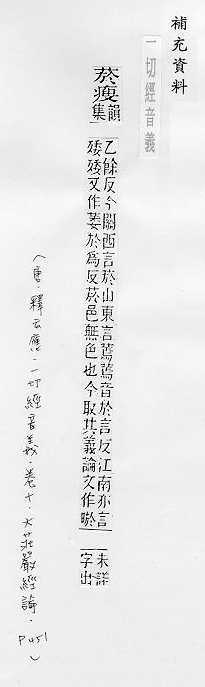 補充資料
一切經音義
菸瘦韻集
乙餘反今關西言菸山東言蔫蔫音於言反江南亦言
㱬㱬又作萎於為反菸邑無色也今取其義論文作
未詳
字出
（唐．釋玄應．一切經音義．卷十．大莊嚴經論．P451）